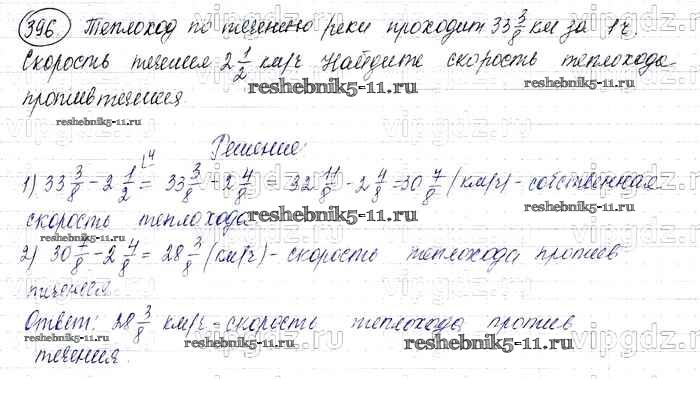 396. Теплоход по течению реки проходит 33 3/8 км за 1ч.
Скорость течения 2 1/2 км/ч. Найдите скорость теплохода
против течения.
reshebnik5-11.ru
reshebnik5-11.ru
Решение:
1) 33 3/8 - 2 1/2 = 33 3/8 - 2 4/8 = 32 11/8 - 2 4/8 = 30 7/8 (км/ч) - собственная
скорость теплохода
reshebnik5-11.ru
reshebnik5-11.ru
2) 30 7/8 - 2 4/8 = 28 3/8 (км/ч) - скорость теплохода против
течения.
Ответ: 28 3/8 км/ч - скорость теплохода против
течения.
reshebnik5-11.ru
reshebnik5-11.ru